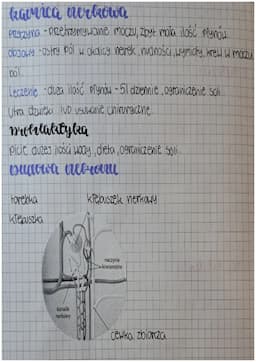 kamica nerkowa
przyczyna - przetrzymywanie moczu, zbyt mała ilość płynów
objawy - ostry ból w okolicy nerek, nudności, wymioty, krew w moczu,
ból.
Leczenie - duża ilość płynów - 5l dziennie, ograniczenie soli
Ultra dźwięki lub usuwanie chirurgiczne.
profilaktyka
Picie dużej ilości wody, dieta, ograniczenie soli.
budowa nefronu
torebka kłębuszek nerkowy
kłębuszka
naczynia
krwionośne
kanalik
nerkowy
cewka zbiorcza